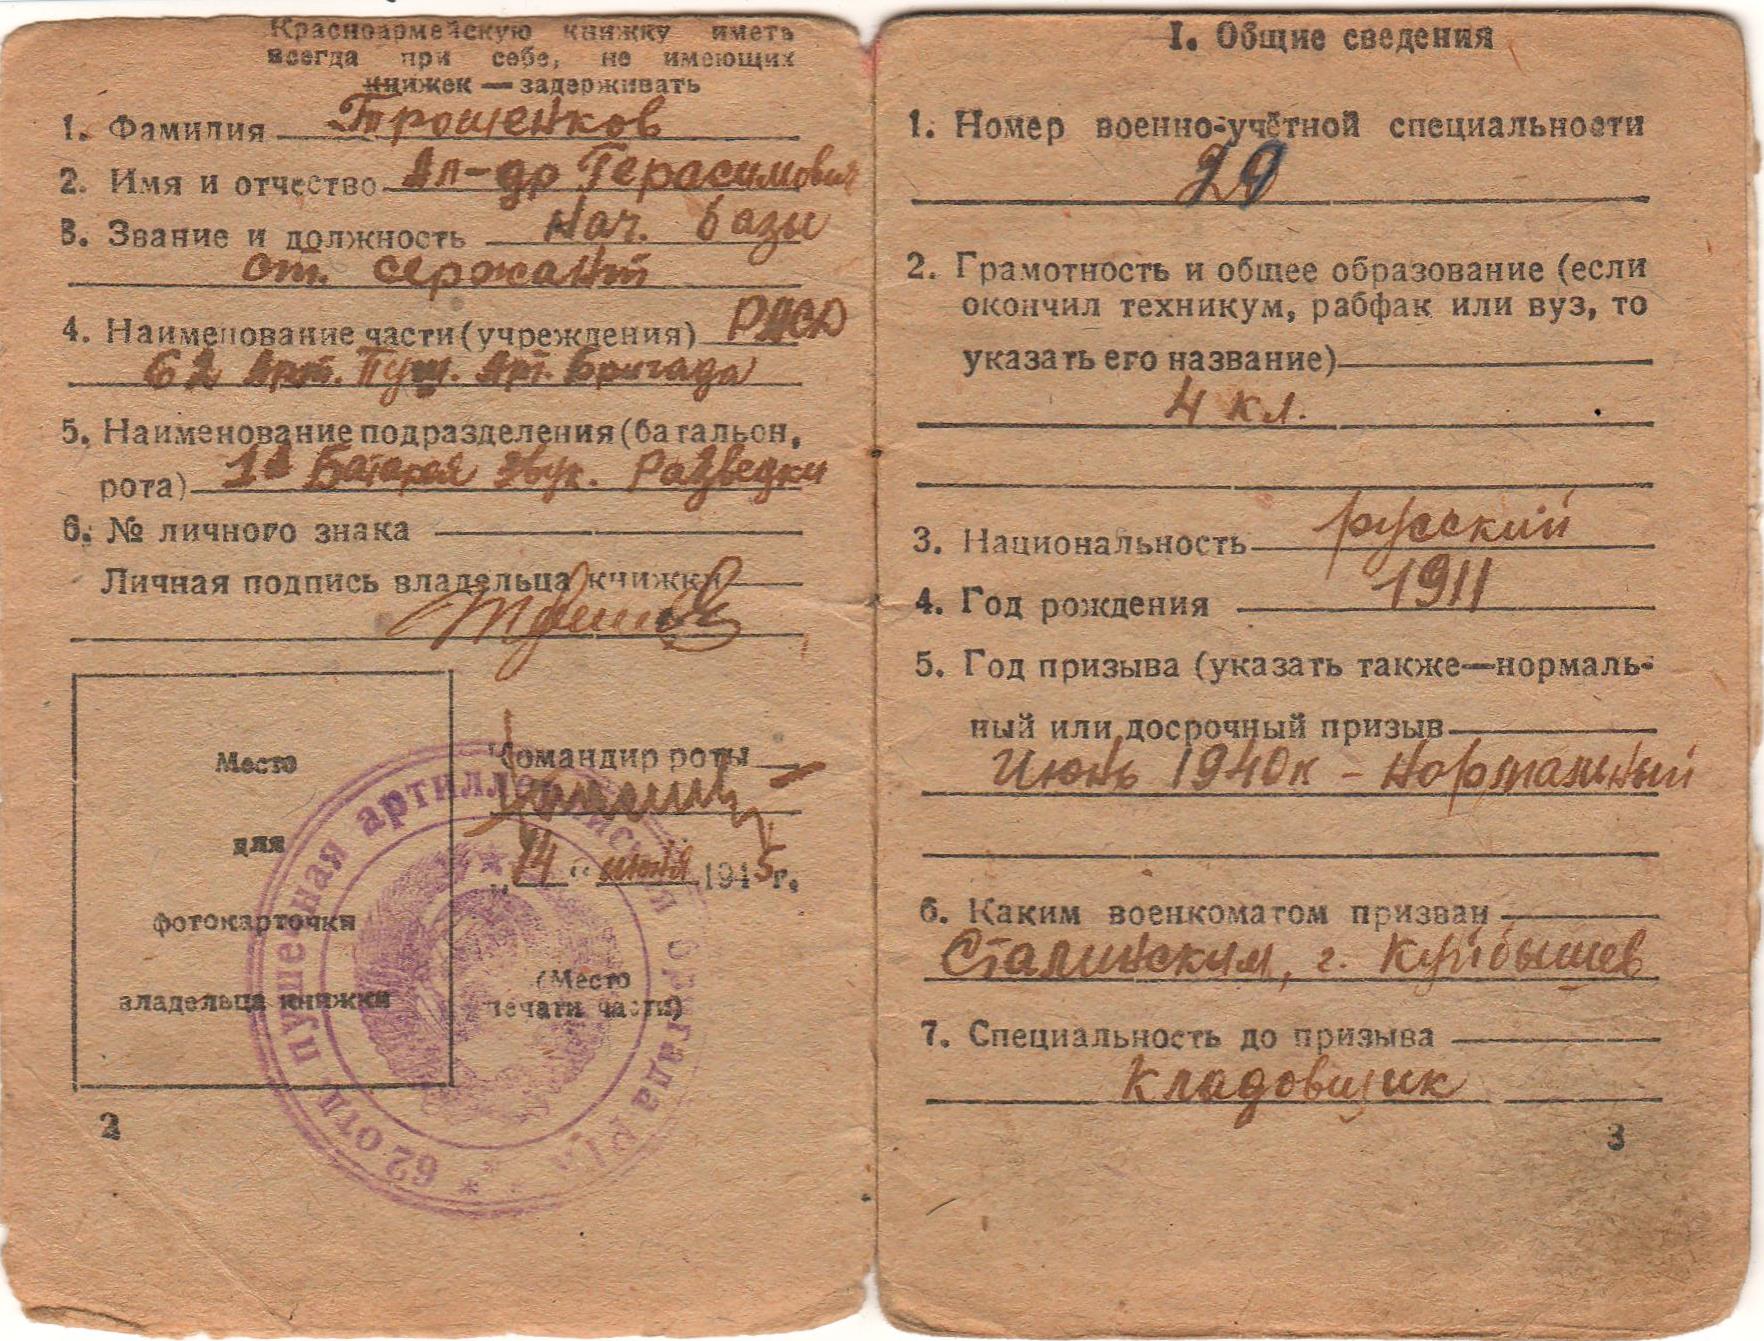 Красноармейскую книжку иметь
всегда при себе, не имеющих
книжек — задерживать
1. Фамилия Трошенков
2. Имя и отчество Ал-др Герасимович
3. Звание и должность Нач. базы
ст. сержант
4. Наименование части (учреждения)
62 Арт. Пуш. Арт. Бригада
5. Наименование подразделения (батальон,
рота) 1я Батарея Звук. Разведки
6. № личного знака
Личная подпись владельца книжки
Место
для
фотокарточки
владельца книжки
Командир роты
„14“ июня 1945 г.
(Место
печати части)
62 отд. пушечная артиллерийская бригада РГК
2
I. Общие сведения
1. Номер военно-учётной специальности
2. Грамотность и общее образование (если
окончил техникум, рабфак или вуз, то
указать его название)
4 кл.
3. Национальность русский
4. Год рождения 1911
5. Год призыва (указать также—нормаль-
ный или досрочный призыв
Июнь 1940 – Нормальный
6. Каким военкоматом призван
Сталинским, г. Куйбышев
7. Специальность до призыва
Кладовщик
3